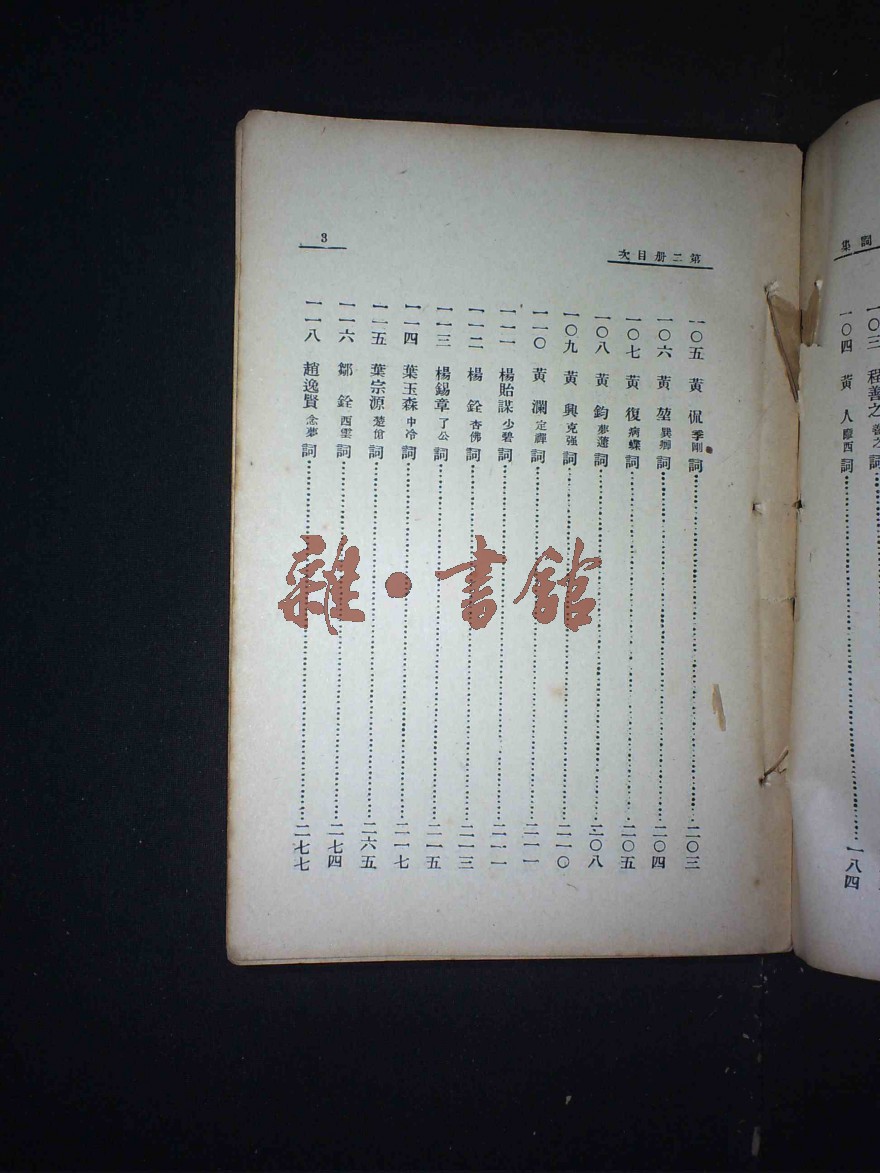 詞集
一〇三 程善之 善之 詞
一〇四 黃人 摩西 詞 一八四
第二册目次
3
一〇五 黃侃 季剛 詞 二〇三
一〇六 黃堃 巽卿 詞 二〇四
一〇七 黃復 病蝶 詞 二〇五
一〇八 黃鈞 夢蘧 詞 二〇八
一〇九 黃興 克强 詞 二一〇
一一〇 黃瀾 定禪 詞 二一一
一一一 楊貽謀 少碧 詞 二一一
一一二 楊銓 杏佛 詞 二一三
一一三 楊錫章 了公 詞 二一五
一一四 葉玉森 中冷 詞 二一七
一一五 葉宗源 楚傖 詞 二六五
一一六 鄒銓 西雲 詞 二七四
一一八 趙逸賢 念夢 詞 二七七
雜·書館